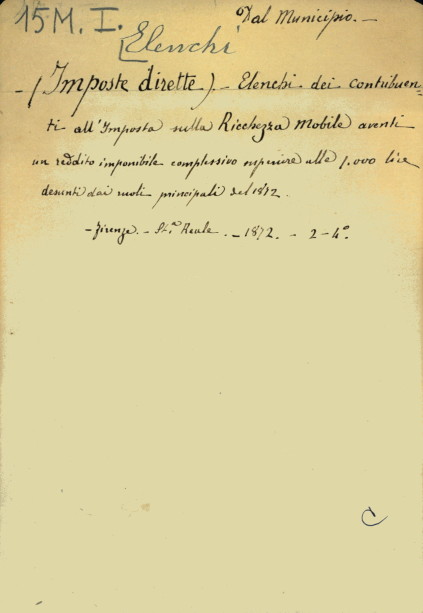 15 M. I.
Dal Municipio. —
[Elenchi
— (Imposte dirette) — Elenchi dei contribuen-
ti all'Imposta sulla Ricchezza Mobile aventi
un reddito imponibile complessivo superiore alle 1.000 lire
desunti dai ruoli principali del 1872.
— Firenze. — St.ia Reale. — 1872. — 2 - 4°.
C